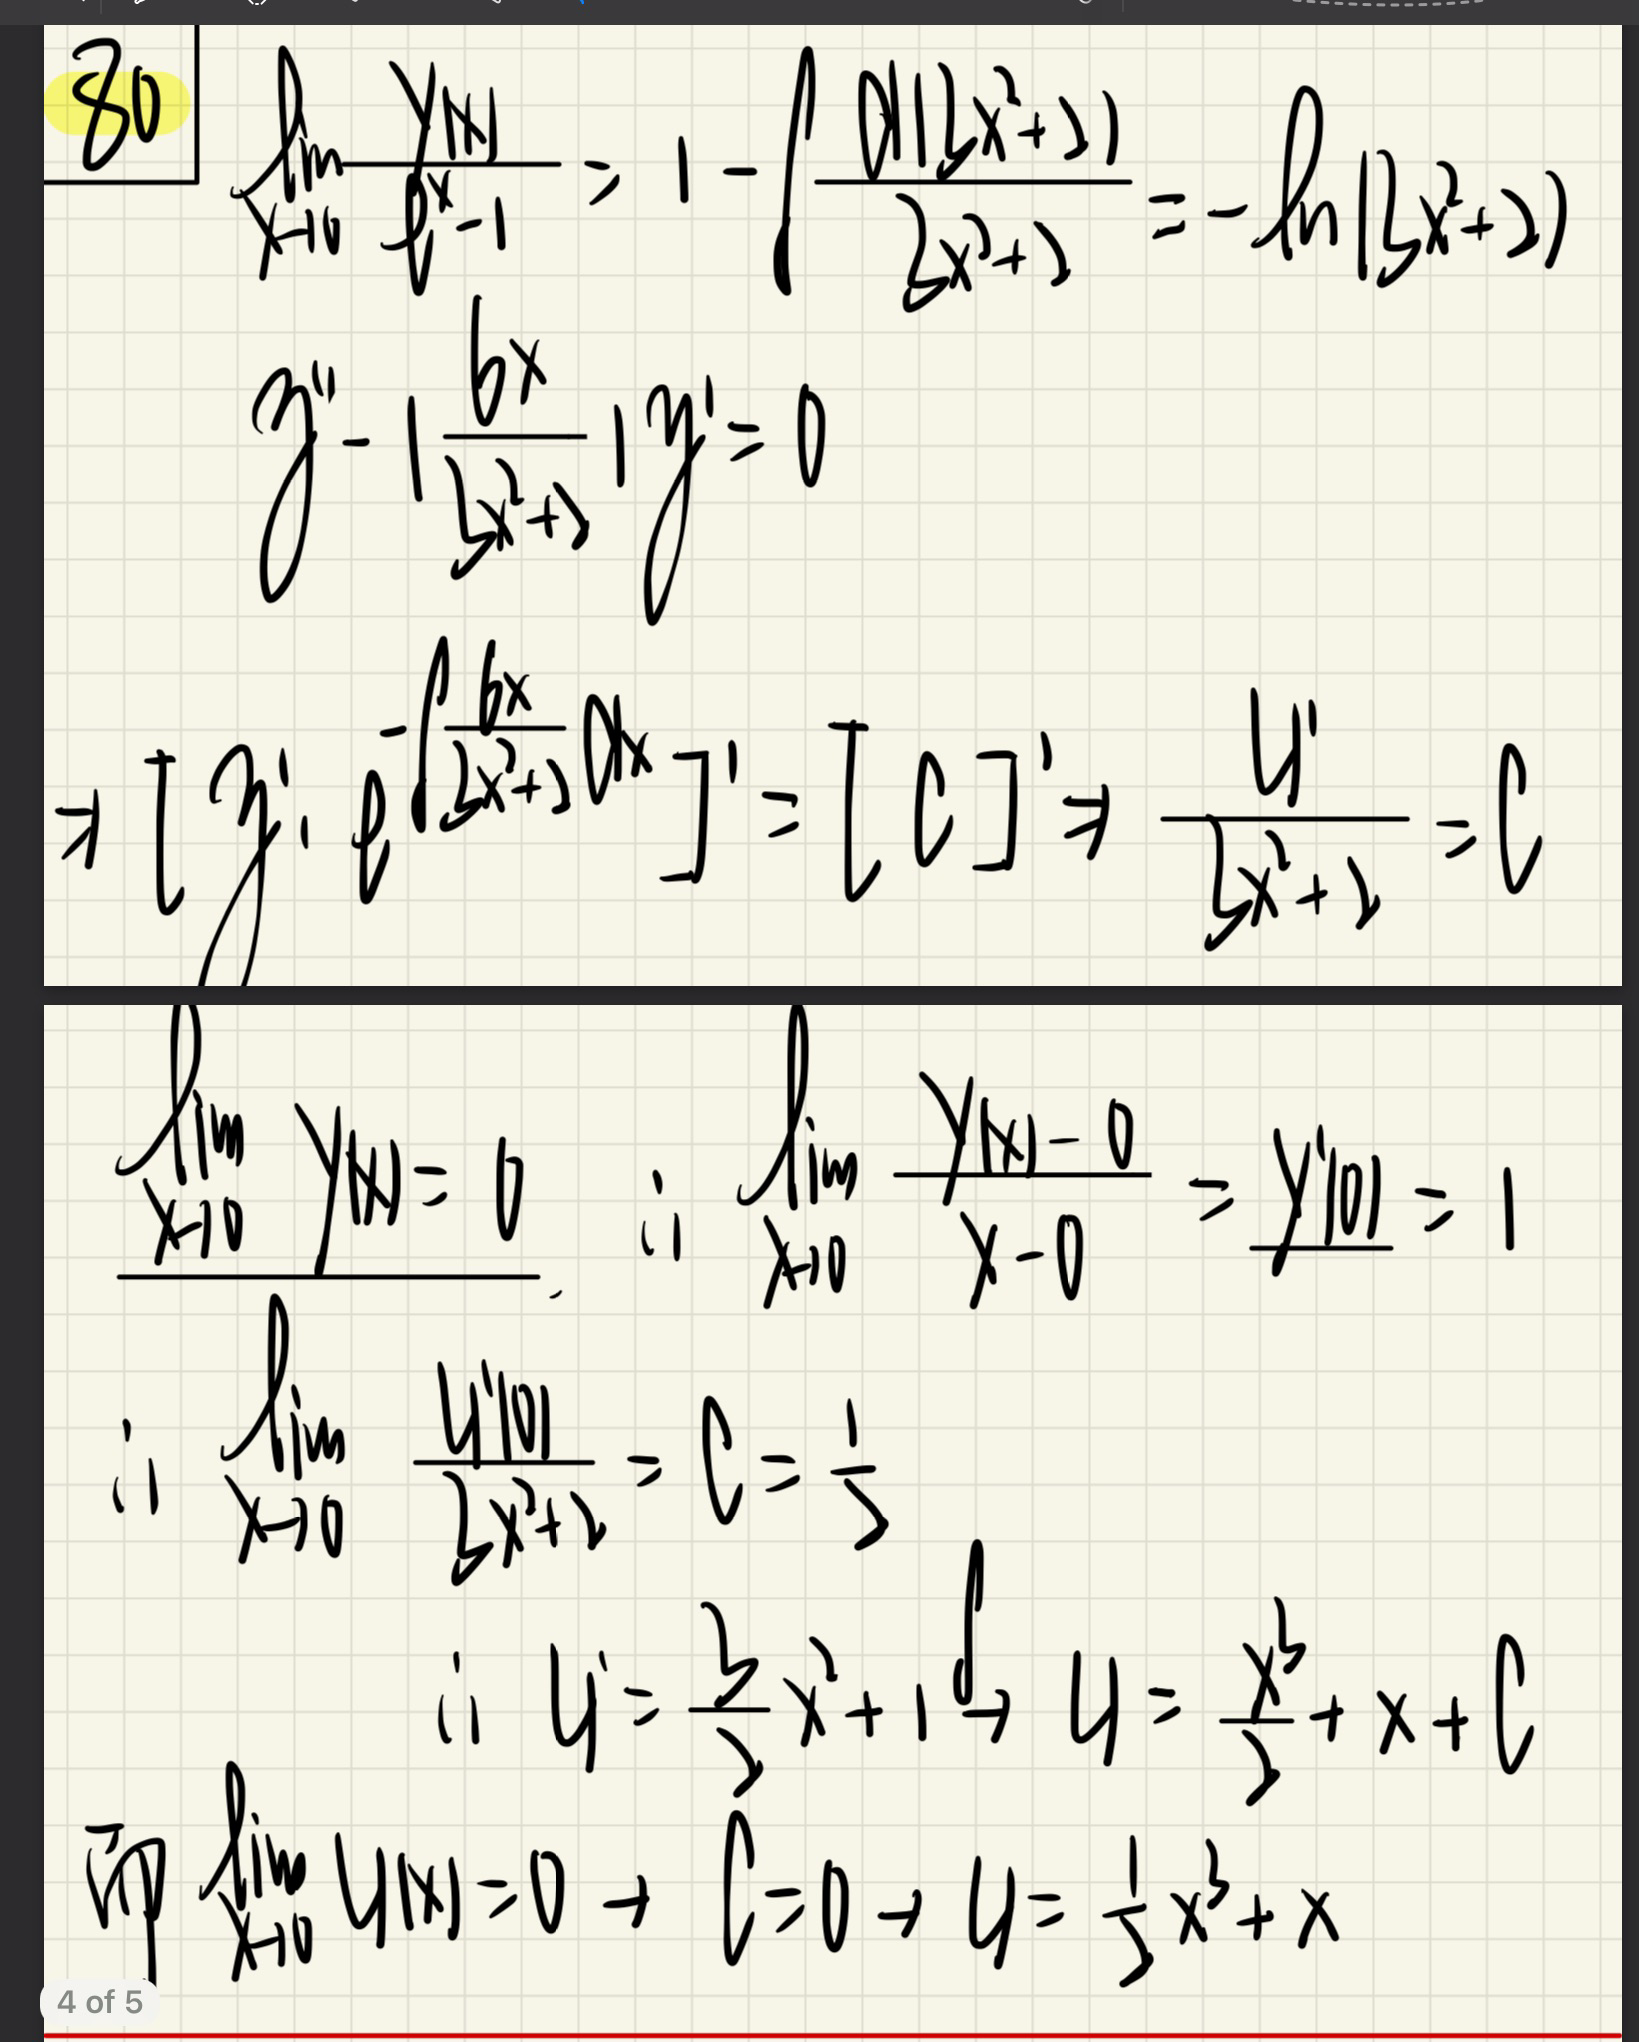 80
lim x→0 y(x)/(e^x-1) = 1 -∫ d(3x²+2)/(3x²+2) = -ln(3x²+2)
y''-(6x/(3x²+2))y'=0
⇒ [y'·e^(-∫6x/(3x²+2)dx)]' = [C]' ⇒ y'/(3x²+2) = C
lim x→0 y(x)=0 ∴ lim x→0 (y(x)-0)/(x-0) = y'(0) = 1
∴ lim x→0 y'(0)/(3x²+2) = C = 1/2
∴ y' = 3/2 x²+1 ∫→ y = x³/2 + x + C
而 lim x→0 y(x)=0 → C=0 → y = 1/2 x³+x
4 of 5